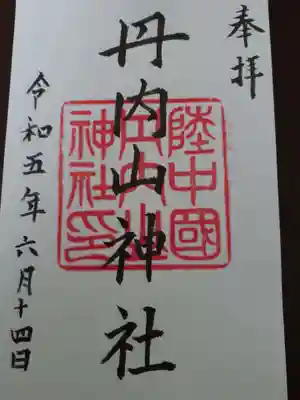 奉拝
陸中國
丹内山
神社印
丹内山神社
令和五年六月十四日